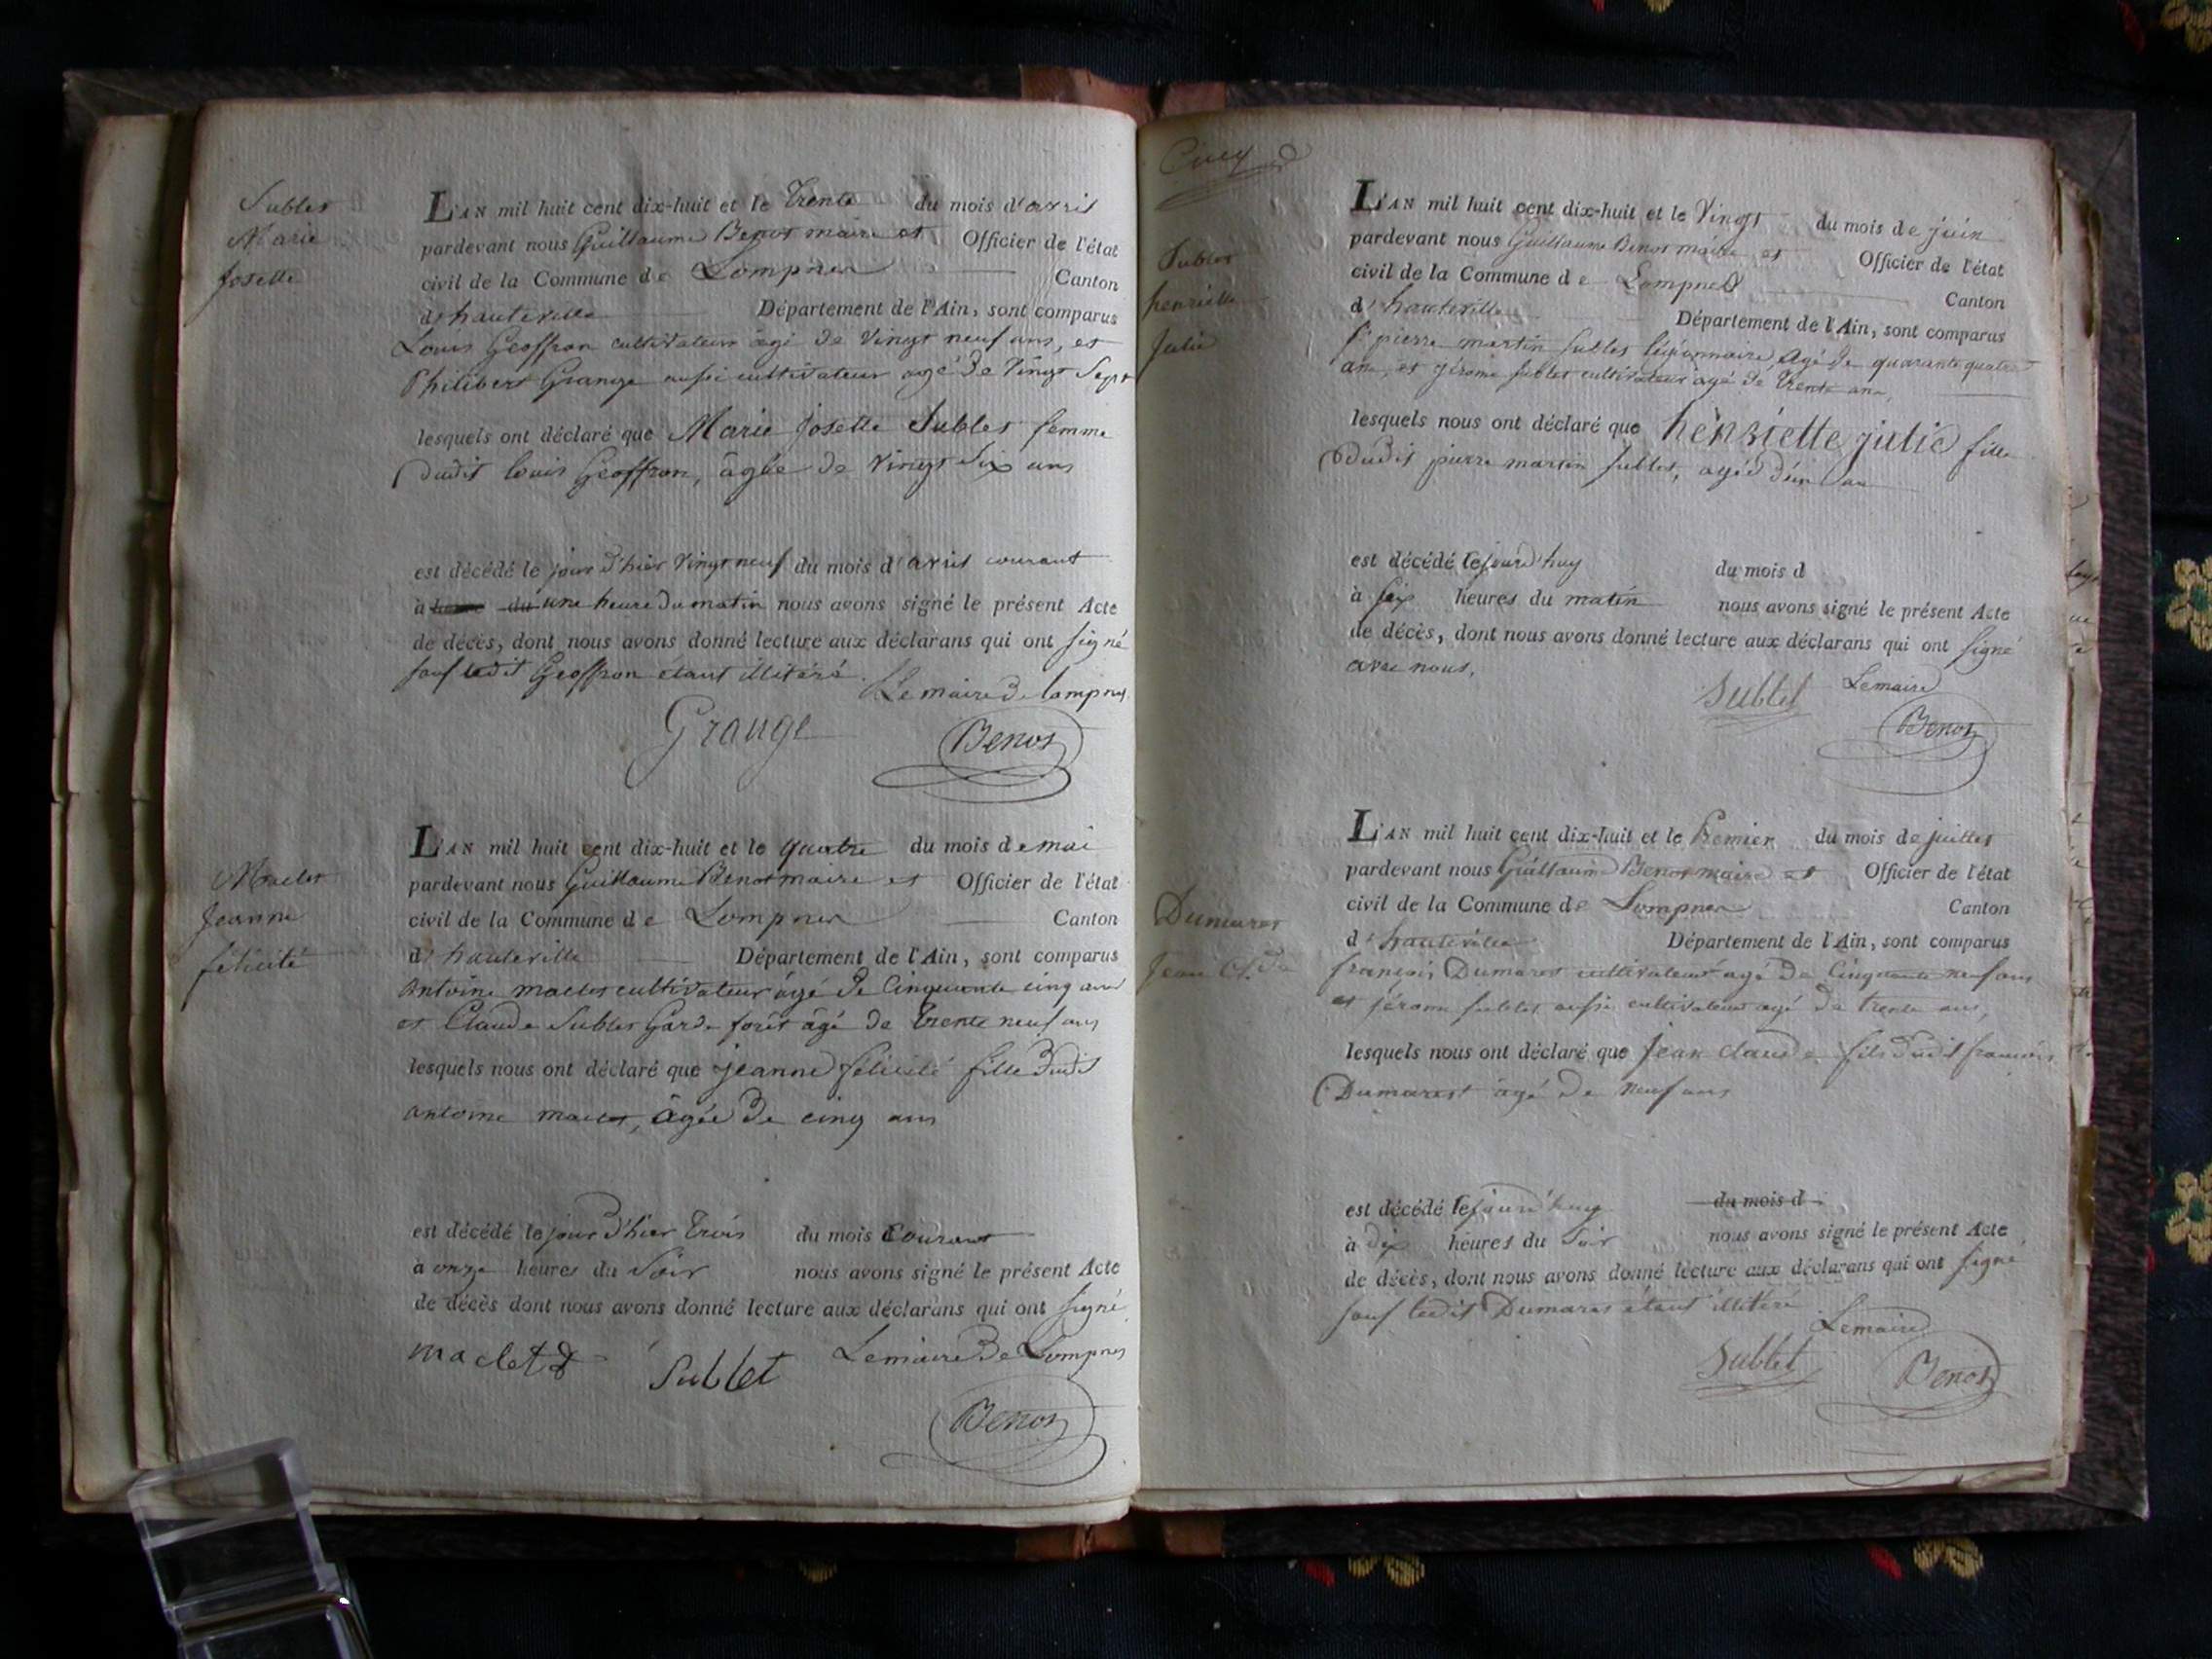 Sublet
Marie
Josette
L'AN mil huit cent dix-huit et le trente du mois d'avril
pardevant nous Guillaume Benot maire et Officier de l'état
civil de la Commune de Lompnes Canton
d'hauteville Département de l'Ain, sont comparus
Louis Geoffron cultivateur âgé de vingt neuf ans, et
Philibert Grange aussi cultivateur agé de vingt sept
lesquels ont déclaré que Marie Josette Sublet femme
dudit Louis Geoffron, âgée de vingt six ans
est décédé le jour d'hier vingt neuf du mois d'avril courant
à une heure du matin nous avons signé le présent Acte
de décès, dont nous avons donné lecture aux déclarans qui ont signé
sauf ledit Geoffron étant illitéré.
Le maire de Lompnes
Grange Benot
Maclet
Jeanne
félicité
L'AN mil huit cent dix-huit et le quatre du mois de mai
pardevant nous Guillaume Benot maire et Officier de l'état
civil de la Commune de Lompnes Canton
d'hauteville Département de l'Ain, sont comparus
Antoine maclet cultivateur âgé de Cinquante cinq ans
et Claude Sublet Garde forêt âgé de trente neuf ans
lesquels nous ont déclaré que jeanne félicité fille dudit
antoine maclet, âgée de cinq ans
est décédé le jour d'hier trois du mois Courant
à onze heures du Soir nous avons signé le présent Acte
de décès dont nous avons donné lecture aux déclarans qui ont signé
maclet Sublet Le maire de Lompnes
Benot
Cinq
Sublet
henriette
Julie
L'AN mil huit cent dix-huit et le Vingt du mois de juin
pardevant nous Guillaume Benot maire et Officier de l'état
civil de la Commune de Lompnes Canton
d'hauteville Département de l'Ain, sont comparus
Sr pierre martin Sublet légionnaire agé de quarante quatre
ans, et jérome Sublet cultivateur agé de trente ans,
lesquels nous ont déclaré que henriette julie fille
dudit pierre martin Sublet, agée d'un an
est décédé le jourd'huy du mois d
à six heures du matin nous avons signé le présent Acte
de décès, dont nous avons donné lecture aux déclarans qui ont signé
avec nous.
Sublet Le maire
Benot
Dumarest
Jean Cl.de
L'AN mil huit cent dix-huit et le Premier du mois de juillet
pardevant nous Guillaume Benot maire et Officier de l'état
civil de la Commune de Lompnes Canton
d'hauteville Département de l'Ain, sont comparus
françois Dumarest cultivateur agé de Cinquante neuf ans
et jérome Sublet aussi cultivateur agé de trente ans,
lesquels nous ont déclaré que Jean Claude fils dudit françois
Dumarest âgé de neuf ans
est décédé le jourd'huy du mois d
à dix heures du Soir nous avons signé le présent Acte
de décès, dont nous avons donné lecture aux déclarans qui ont signé
sauf ledit Dumarest étant illitéré
Le maire
Sublet Benot